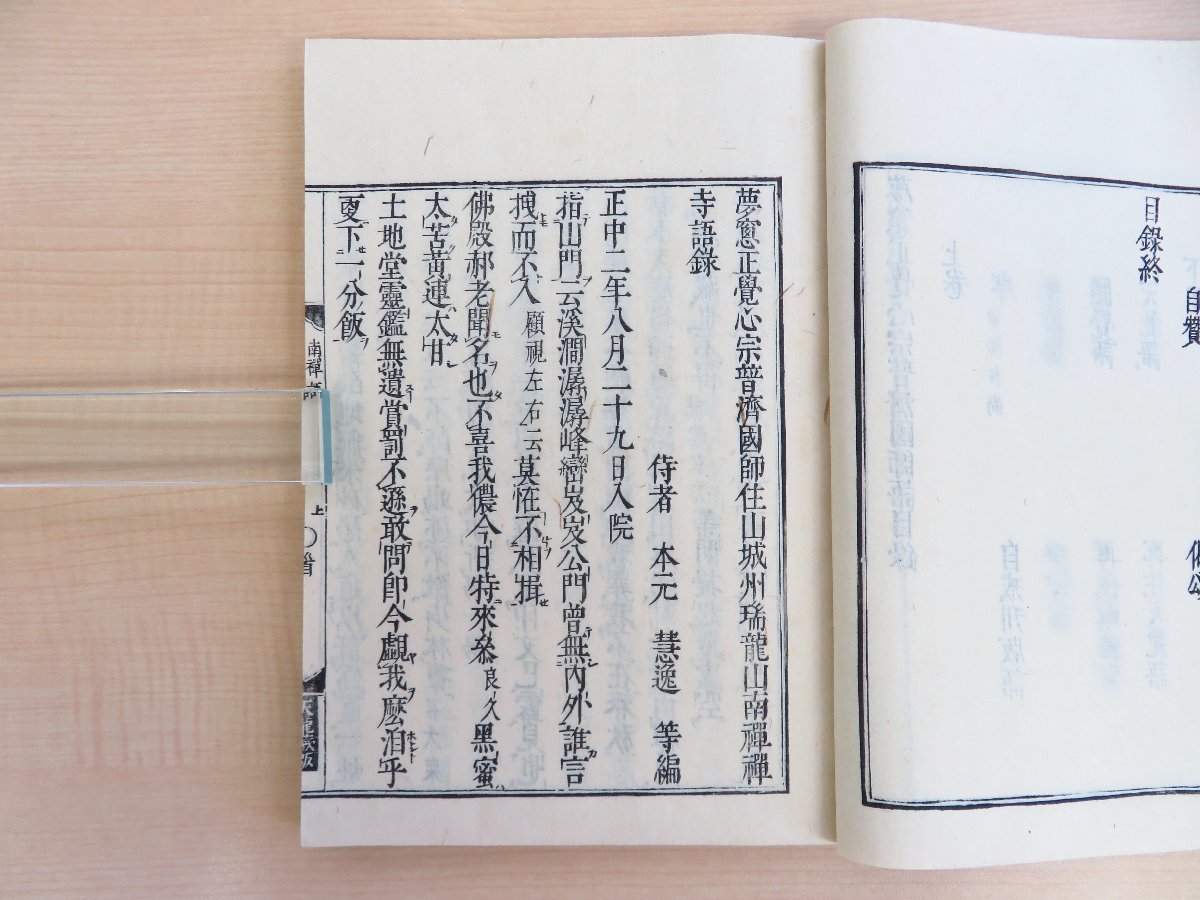 自贊
偈頌
目錄終
夢窓正覺心宗普濟國師住山城州瑞龍山南禪禪
寺語錄
侍者 本元 慧逸 等編
正中二年八月二十九日入院
指山門云溪澗潺潺峰巒岌岌公門曾無內外誰言
拽而不入顧視左右云莫恠不相揖
佛殿郝老聞名也不喜我儂今日特來叅良久黑蜜
太苦黃連太甘
土地堂靈鑑無遺賞罰不遜敢問卽今覷我麽洎乎
更下一分飯
南禪
上